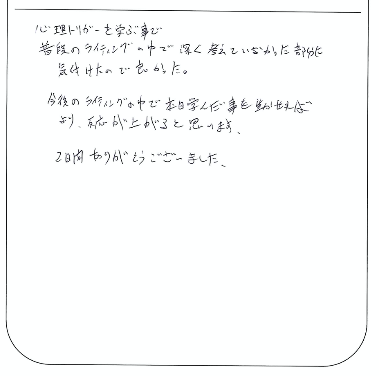 心理トリガーを学ぶ事で
普段のライティングの中で深く考えていなかった部分に
気付けたので良かった。
今後のライティングの中で本日学んだ事を活かせれば
より、反応が上がると思います。
2日間ありがとうございました。